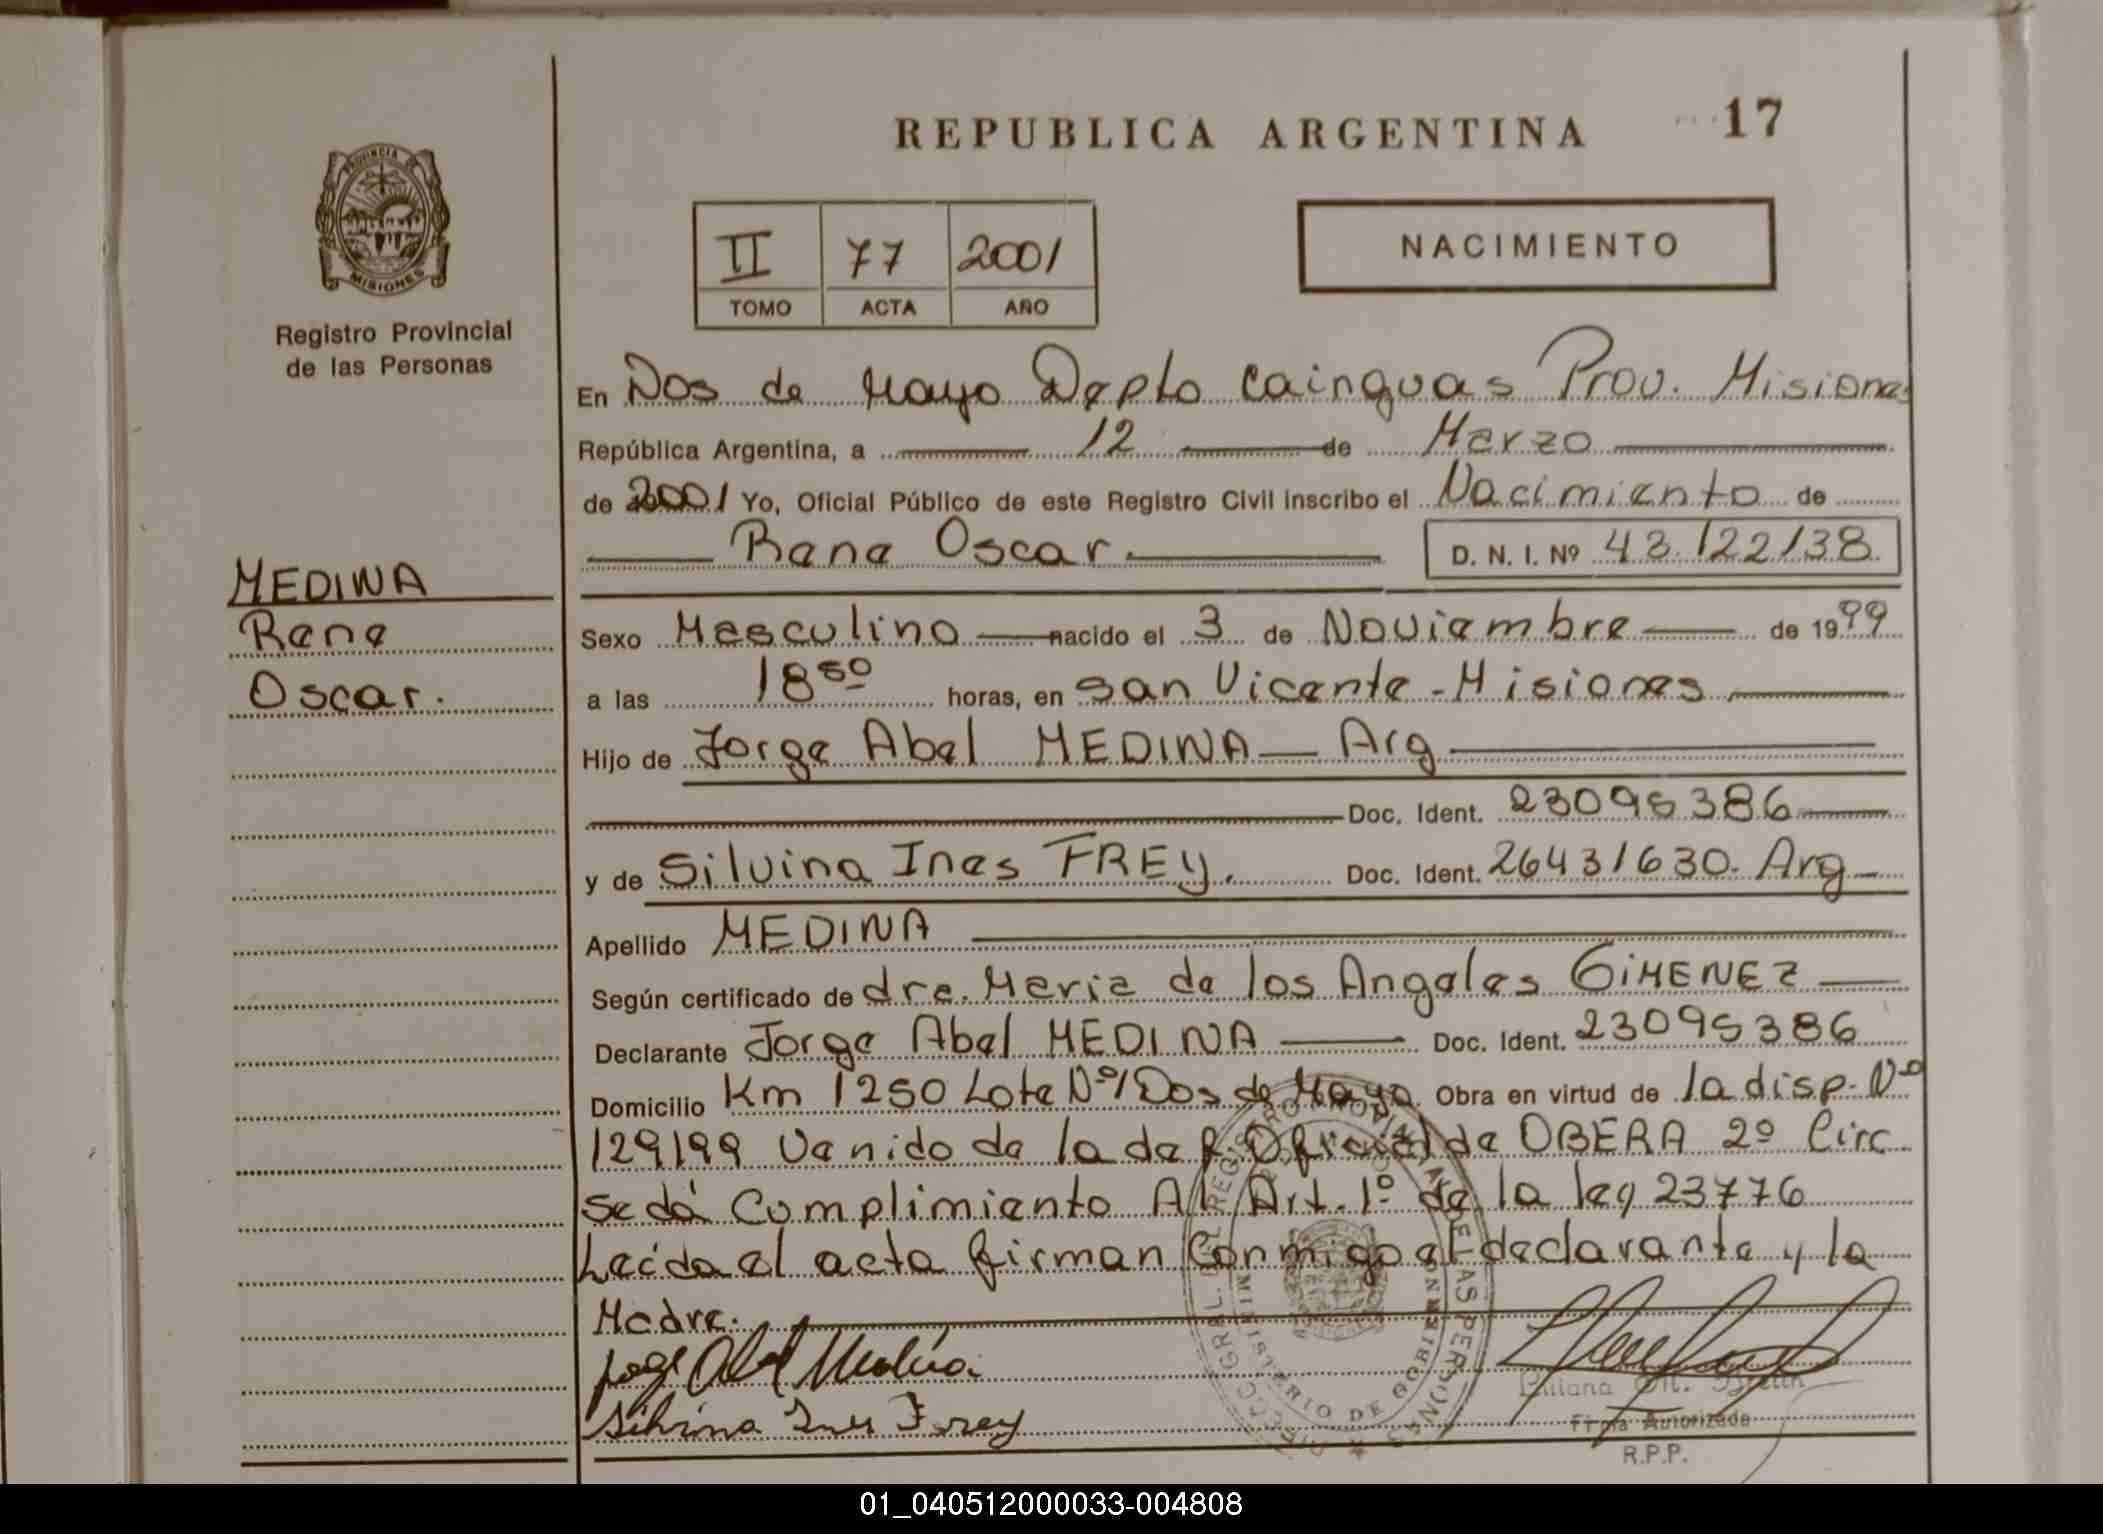 REPUBLICA ARGENTINA 17
PROVINCIA DE
MISIONES
Registro Provincial
de las Personas
II 77 2001
TOMO ACTA AÑO
NACIMIENTO
En Dos de Mayo Depto Cainguas Prov. Misiones
República Argentina, a 12 de Marzo
de 2001 Yo, Oficial Público de este Registro Civil inscribo el Nacimiento de
Rene Oscar D. N. I. Nº 43.122138
MEDINA
Rene
Oscar.
Sexo Masculino nacido el 3 de Noviembre de 1999
a las 18 50 horas, en San Vicente - Misiones
Hijo de Jorge Abel MEDINA Arg
Doc. Ident. 23095386
y de Silvina Ines FREY. Doc. Ident. 26431630. Arg
Apellido MEDINA
Según certificado de dra. Maria de los Angeles GIMENEZ
Declarante Jorge Abel MEDINA Doc. Ident. 23095386
Domicilio Km 1250 Lote Nº1 Dos de Mayo Obra en virtud de la disp. Nº
129/99 Venido de la def. Oficial de OBERA 2º Circ
se dá Cumplimiento Al Art. 1º de la ley 23776
Leída el acta firman Conmigo el declarante y la
Madre.
Jorge Abel Medina
Silvina Ines Frey
MINISTERIO DE GOBIERNO
Firma Autorizada
R.P.P.
01_040512000033-004808